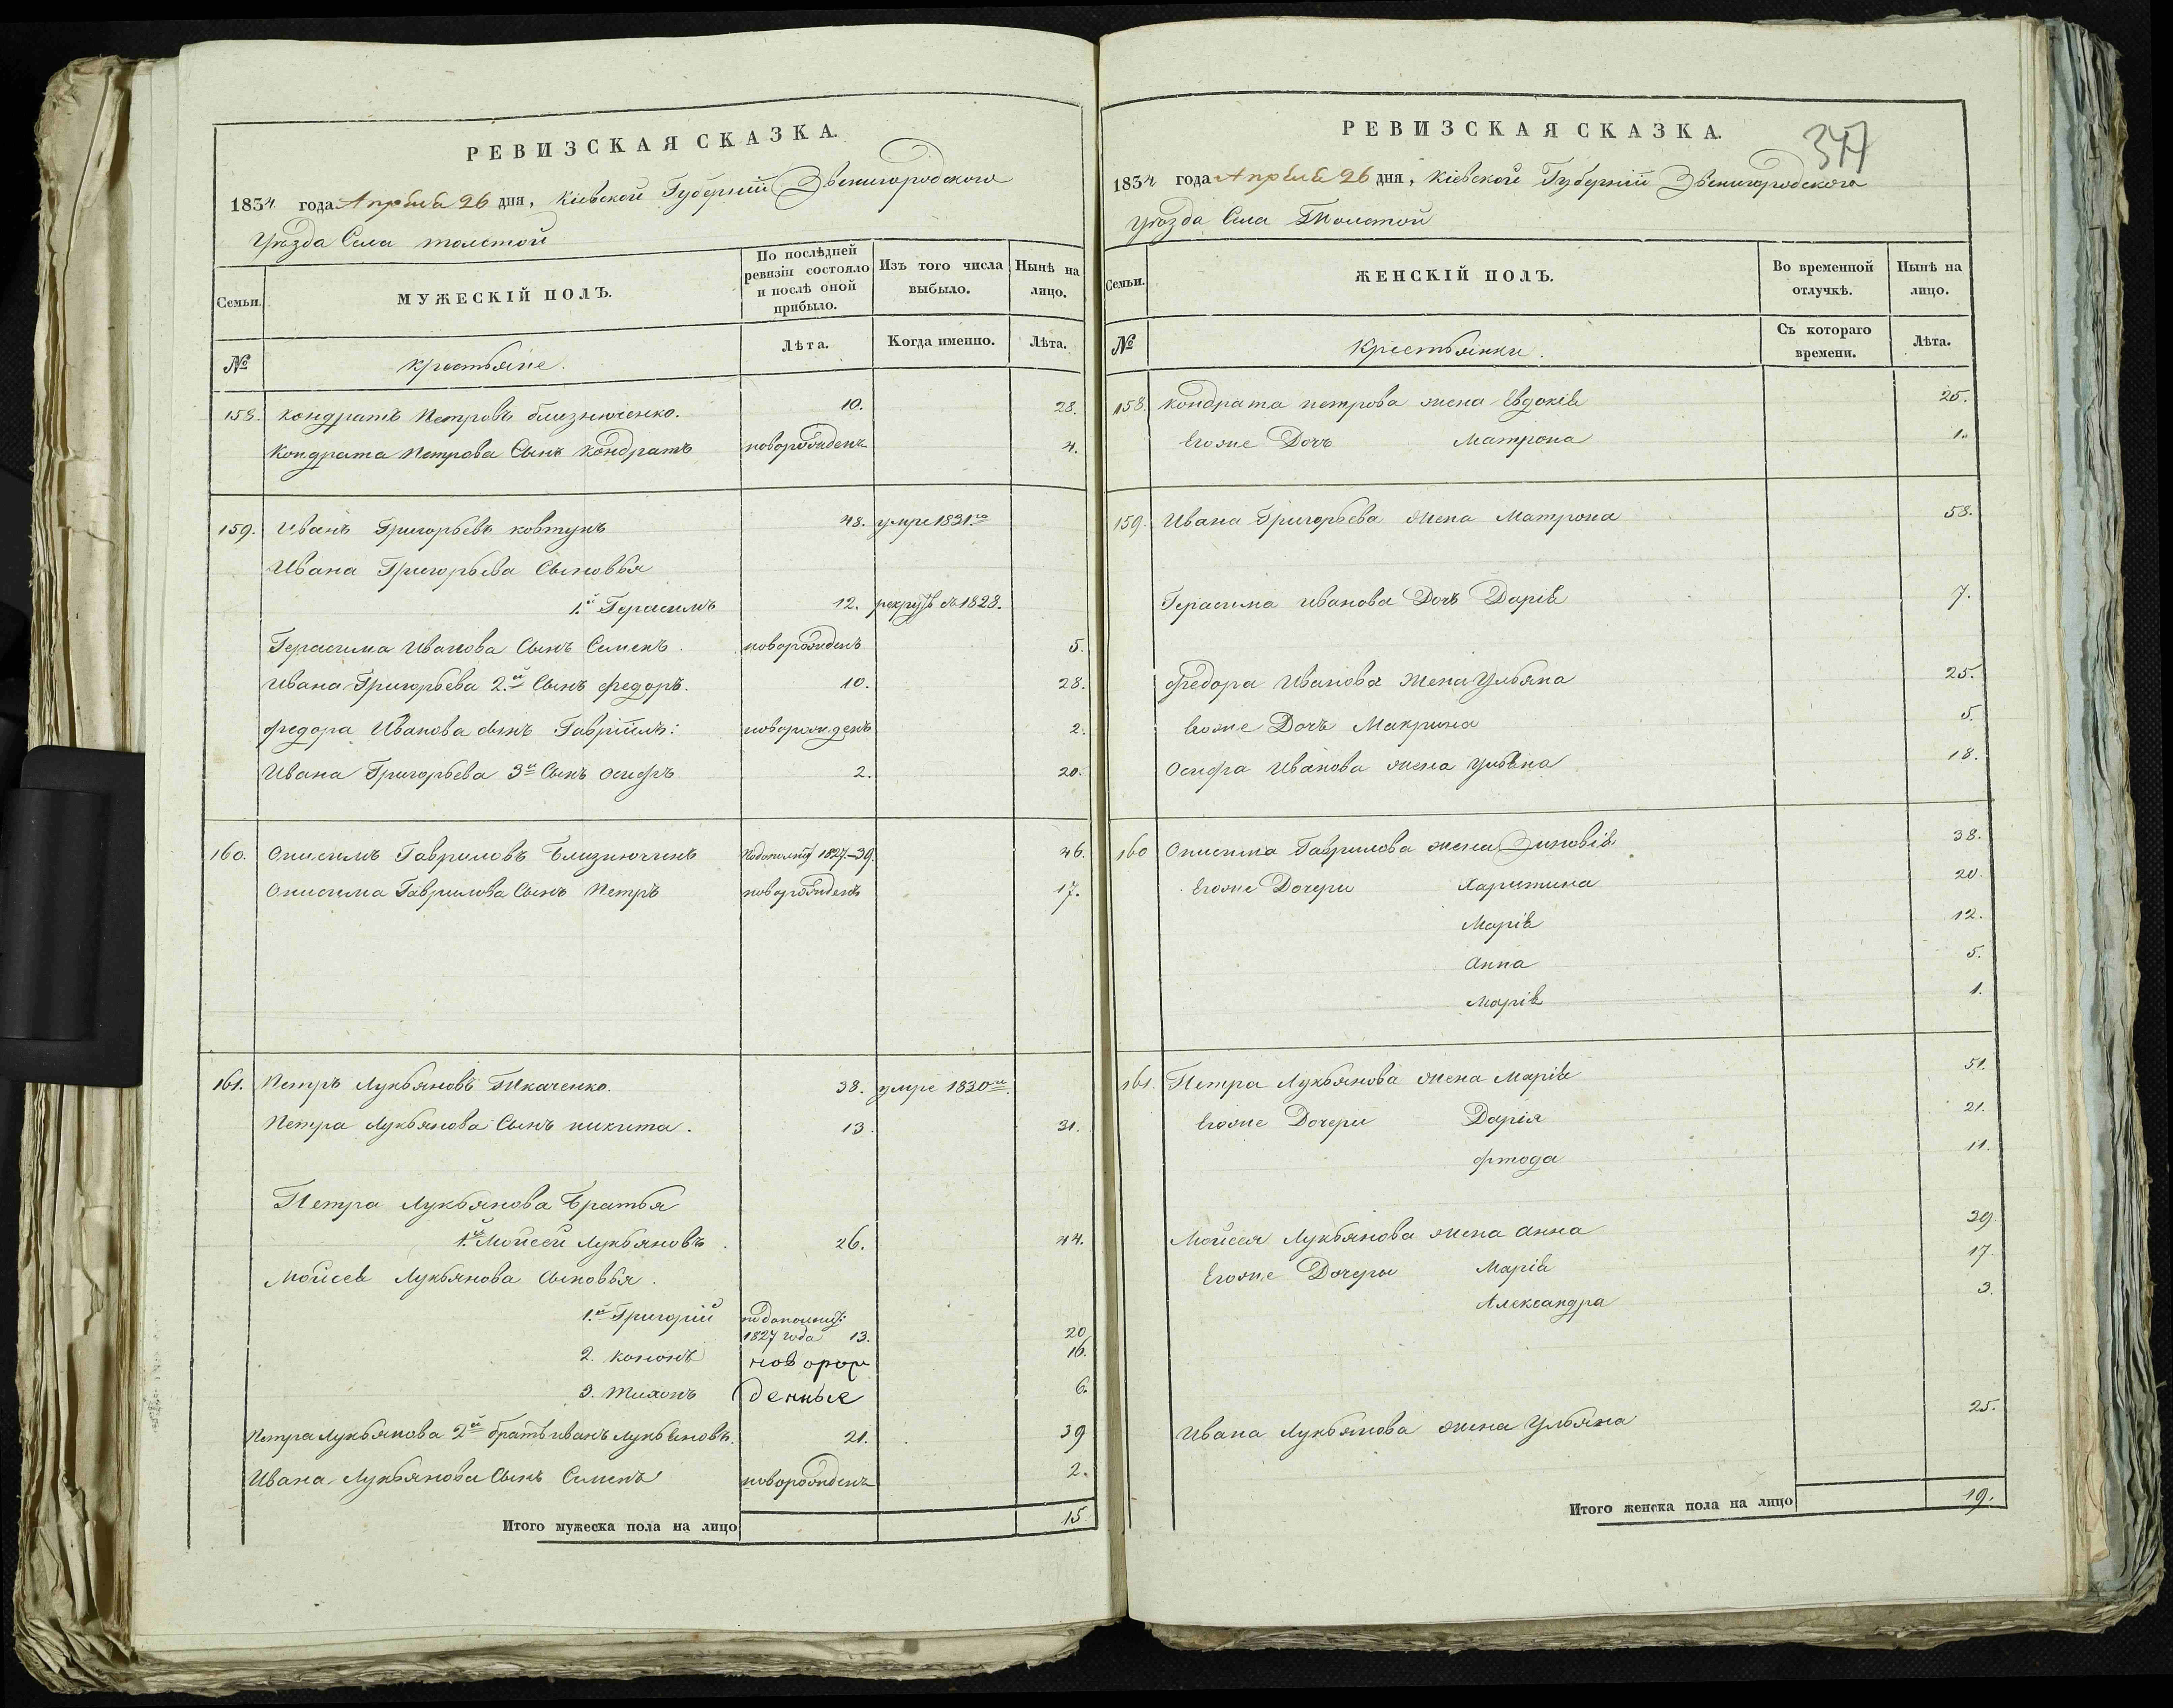 РЕВИЗСКАЯ СКАЗКА.
1834 года Апреля 26 дня, Кіевской Губерніи Звенигородского
Уѣзда Села толстой
Семьи. МУЖЕСКІЙ ПОЛЪ. По послѣдней ревизіи состояло и послѣ оной прибыло. Изъ того числа выбыло. Нынѣ на лицо.
№ Крестьяне. Лѣта. Когда именно. Лѣта.
158. Кондратъ Петровъ близнюченко. 10. 28.
Кондрата Петрова Сынъ Кондратъ новорожденъ 4.
159. Иванъ Григорьевъ ковтунъ 48. умре 1831го
Ивана Григорьева Сыновья
1.й Герасимъ 12. рекрутъ въ 1828.
Герасима Иванова Сынъ Семенъ. новорожденъ 5.
Ивана Григорьева 2.й Сынъ федоръ. 10. 28.
федора Иванова сынъ Гавріилъ: новорожденъ 2.
Ивана Григорьева 3й Сынъ осифъ 2. 20.
160. Онисимъ Гавриловъ Близнюченк 1827.—39. 46.
Онисима Гаврилова Сынъ Петръ новорожденъ 17.
161. Петръ Лукьяновъ Ткаченко. 38. умре 1830го.
Петра Лукьянова Сынъ никита. 13. 31.
Петра Лукьянова Братья
1.й Мойсей Лукьяновъ. 26. 44.
Мойсея Лукьянова Сыновья.
1.й Григорій
1827 года 13. 20
2. кононъ новорож 16.
3. Тихонъ денные 6.
Петра Лукьянова 2й братъ иванъ Лукьяновъ. 21. 39
Ивана Лукьянова Сынъ Семенъ новорожденъ 2.
Итого мужеска пола на лицо 15
РЕВИЗСКАЯ СКАЗКА.
347
1834 года Апреля 26 дня, Кіевской Губерніи Звенигородского
уѣзда Села Толстой
Семьи. ЖЕНСКІЙ ПОЛЪ. Во временной отлучкѣ. Нынѣ на лицо.
№ Крестьянки. Съ котораго времени. Лѣта.
158. Кондрата петрова жена Евдокія 25.
Егоже Дочь Матрона 1.
159. Ивана Григорьева Жена Матрона 58.
Герасима иванова Дочь Дарія 7.
Федора Иванова Жена Ульяна 25.
Егоже Дочь Макрина 5.
Осифа Иванова жена Ульяна 18.
160 Онисима Гаврилова жена Зиновія 38.
Егоже Дочери Харитина 20.
Марія 12.
Анна 5.
Марія 1.
161. Петра Лукьянова жена Марія 51.
Егоже Дочери Дарія 21.
фтода 11.
Мойсея Лукьянова жена анна 39.
Егоже Дочеры Марія 17.
Александра 3.
Ивана Лукьянова жена Ульяна 25.
Итого женска пола на лицо 19.